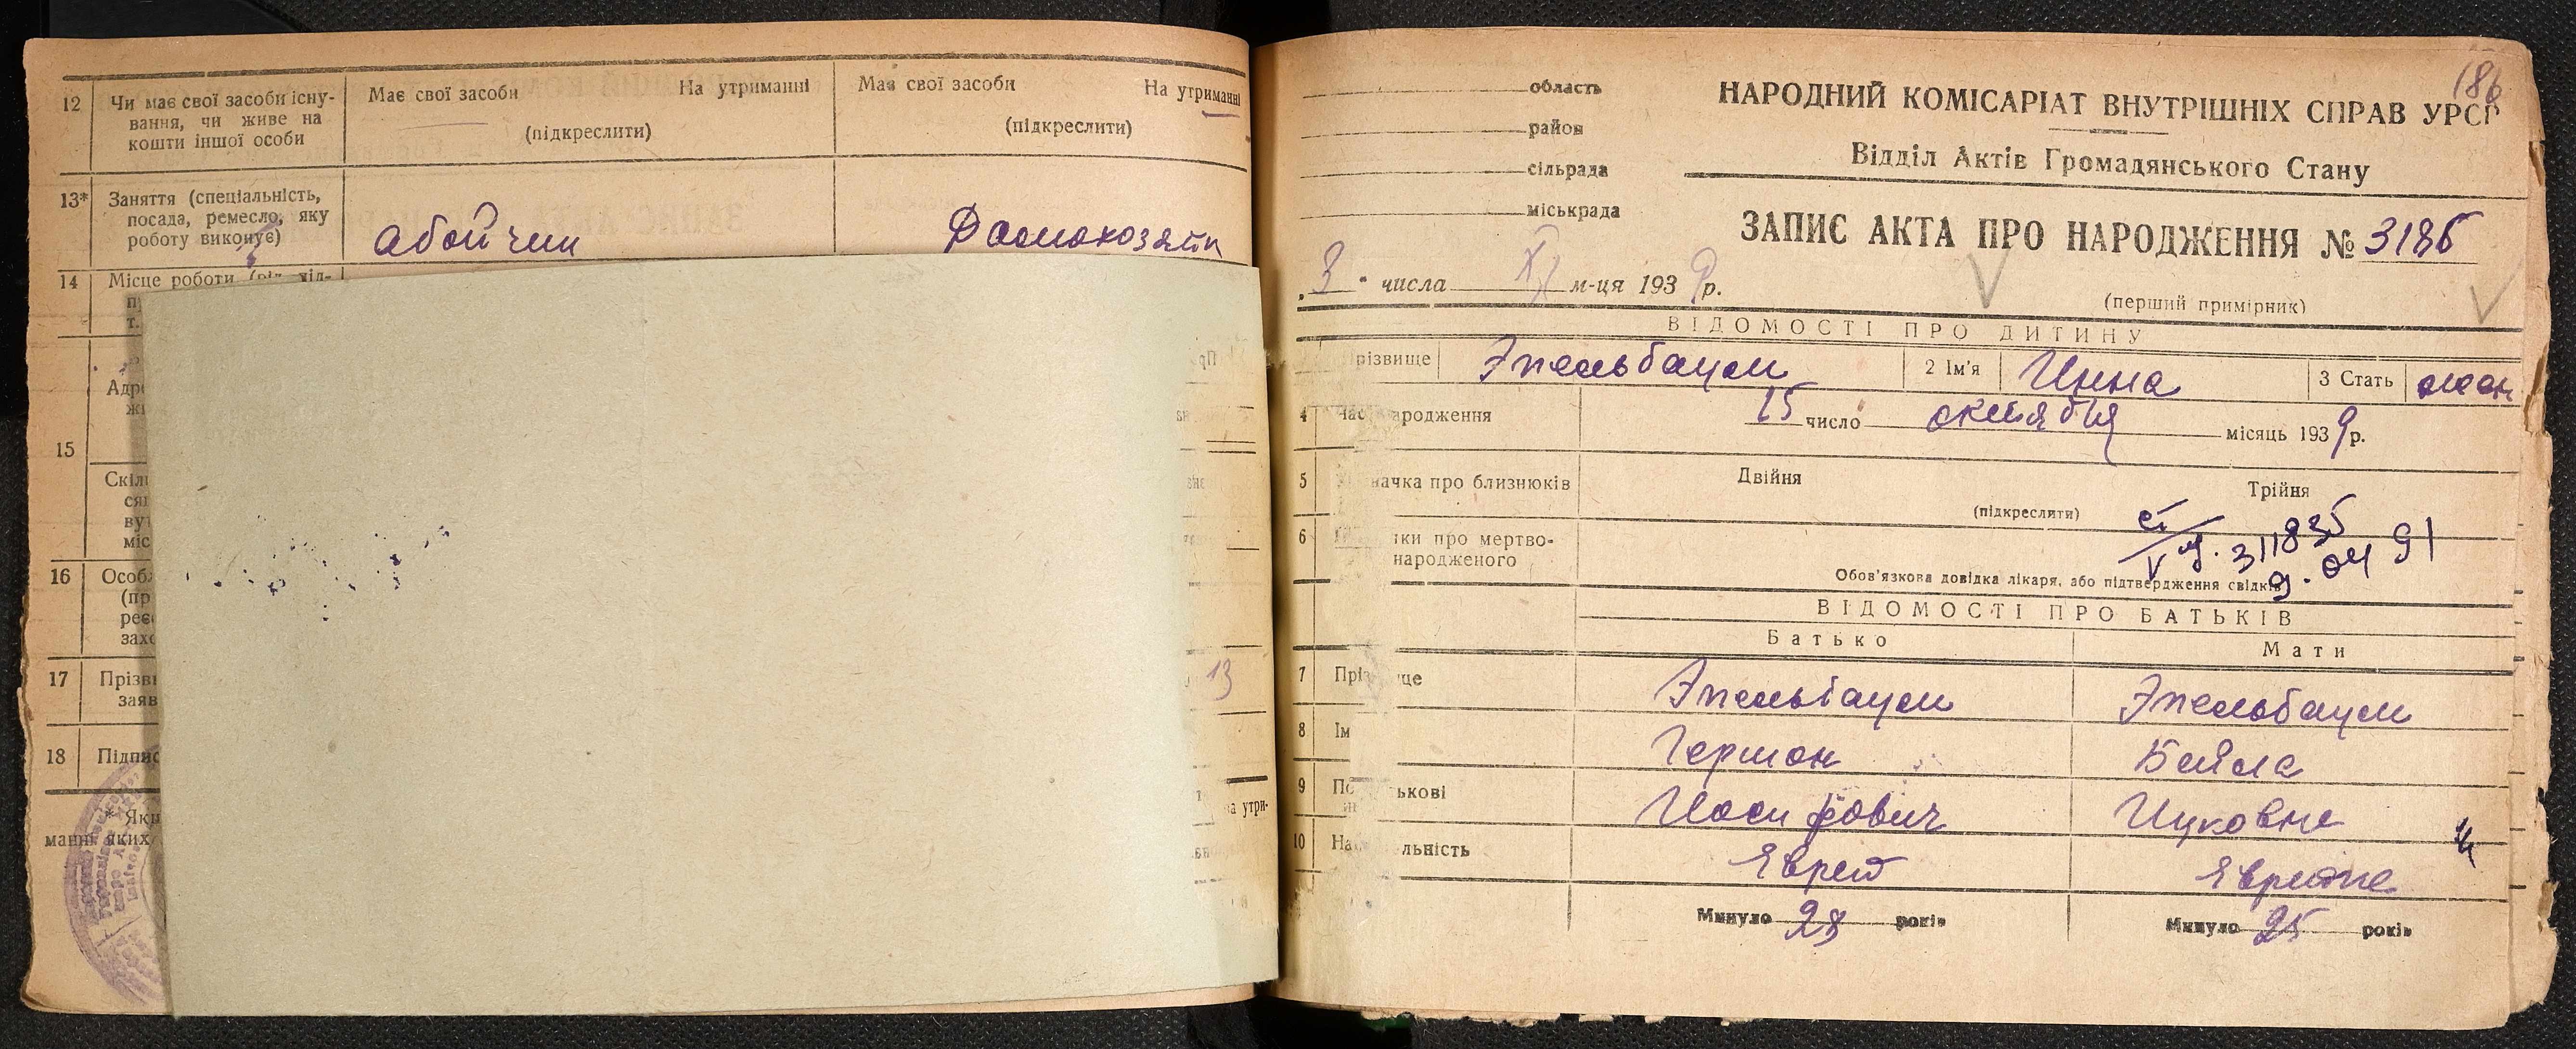 12 Чи має свої засоби існу-
вання, чи живе на
кошти іншої особи
Має свої засоби На утриманні
(підкреслити)
Має свої засоби На утриманні
(підкреслити)
13* Заняття (спеціальність,
посада, ремесло, яку
роботу виконує)
Обойчик
Домохозяйк
14 Місце роботи
15
16
17
18
13
186
область
район
сільрада
міськрада
НАРОДНИЙ КОМІСАРІАТ ВНУТРІШНІХ СПРАВ УРСР
Відділ Актів Громадянського Стану
ЗАПИС АКТА ПРО НАРОДЖЕННЯ № 3186
3 числа XI м-ця 1939 р.
(перший примірник)
ВІДОМОСТІ ПРО ДИТИНУ
Эпельбаум 2 Ім'я Инна 3 Стать жен
4 15 число октября місяць 1939 р.
5 Двійня Трійня
(підкреслити)
6
народженого
311835
9.04 91
Обов'язкова довідка лікаря, або підтвердження свідків
ВІДОМОСТІ ПРО БАТЬКІВ
Батько Мати
7 Эпельбаум Эпельбаум
8 Гершон Бейла
9 Иосифович Ицковна
10 Еврей Еврейка
Минуло 28 років Минуло 25 років